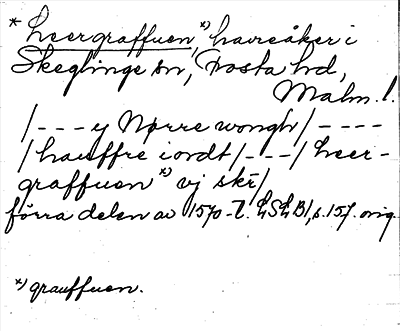 * heergraffuen, *) havreåker i
Skeglinge sn, Frosta hd,
Malm. l.
/--- y Nørre wongh/----
/hauffre iordt/---/heer-
graffuen *) vj skr/
förra delen av 1570-t. LSLB1, s. 157. orig.
*) grauffuen.